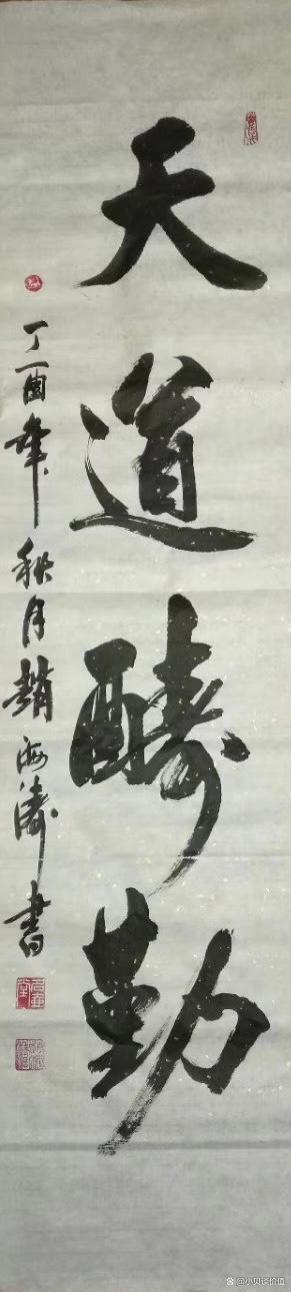 天道酬勤
丁酉年秋月趙海濤書
@小贝谈价值